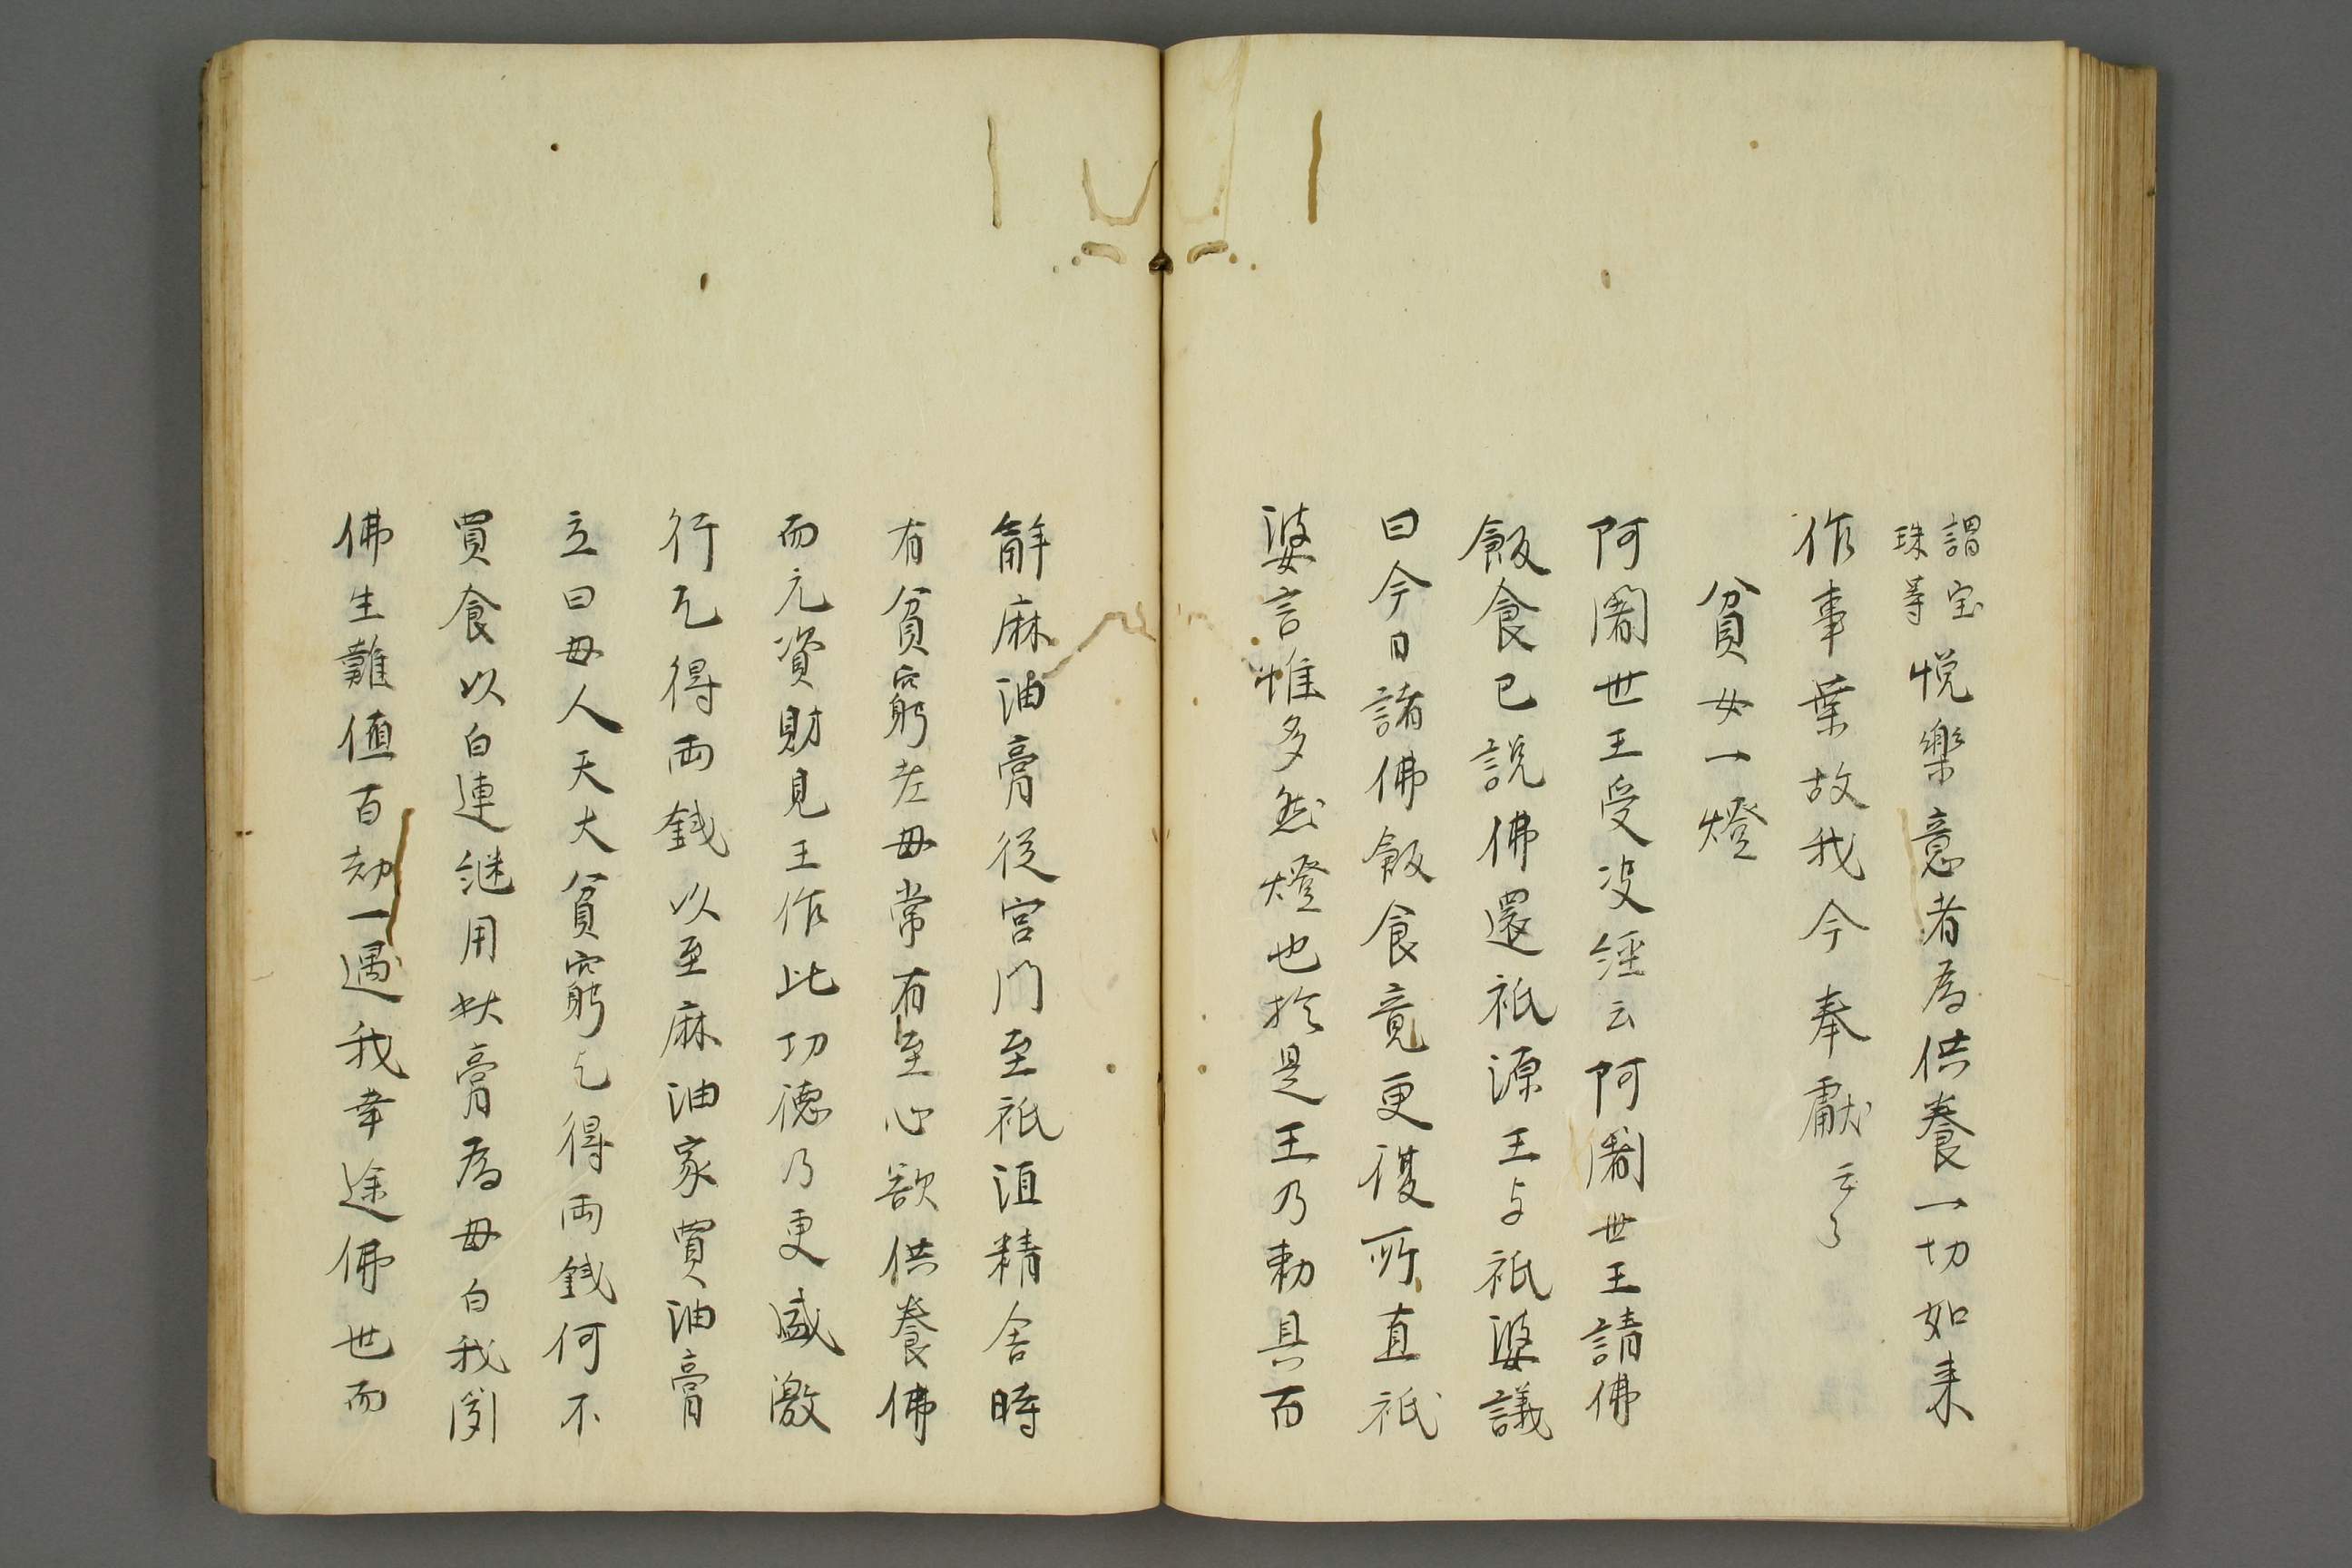 謂宝
珠等
悦樂意者為供養一切如来
作事業故我今奉獻云々
貧女一燈
阿闍世王受没經云阿闍世王請佛
飯食已説佛還祇源王与祇婆議
曰今日諸佛飯食竟更復所直祇
婆言惟多然燈也於是王乃勅具百
斛麻油膏從宮門至祇洹精舍時
有貧窮老母常有至心欲供養佛
而无資財見王作此功德乃更感激
行乞得両錢以至麻油家買油膏
立曰母人天大貧窮乞得両錢何不
買食以自連継用此膏為母白我聞
佛生難值百劫一遇我幸逢佛世而